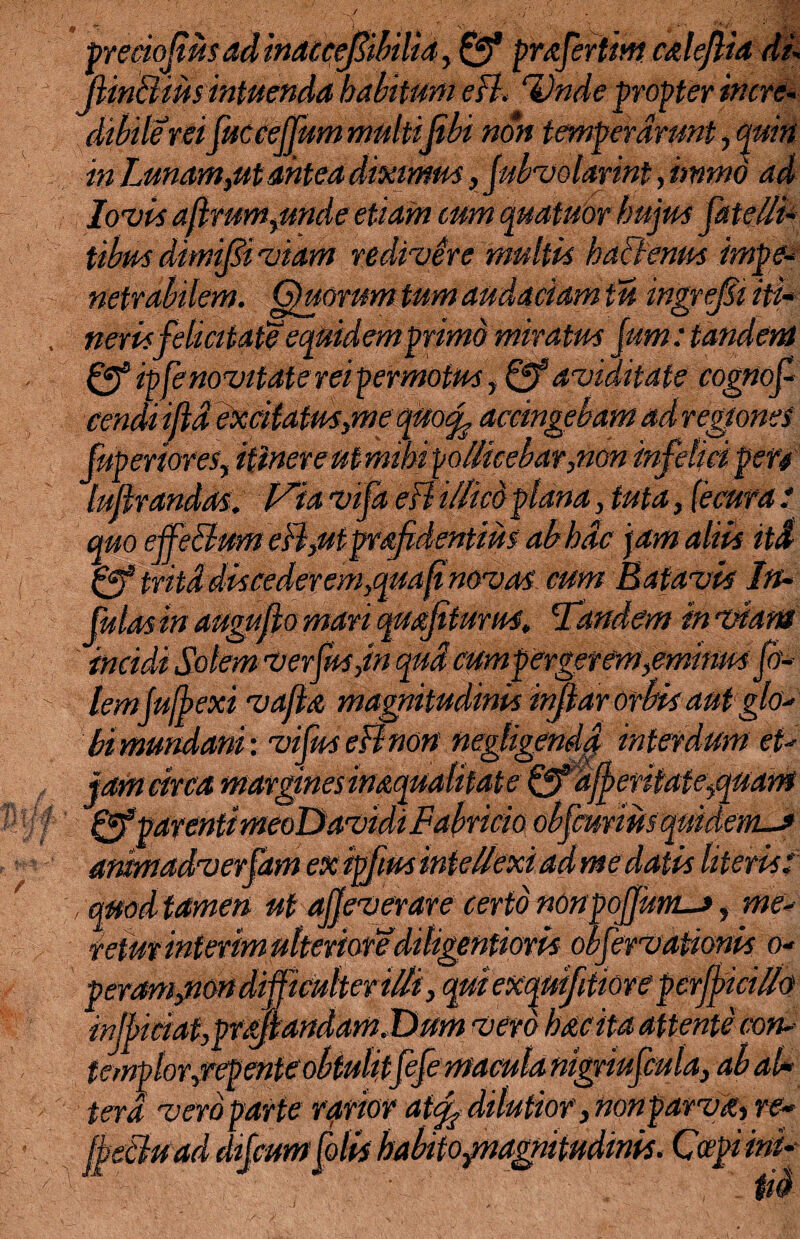 preciosius ad inaccessibilia, & præsertim cælestia di-
stinctius intuenda habitum est. Unde propter incre-
dibile rei successum multi sibi non temperârunt, quin
in Lunam, ut antea diximus, subvolarint, immò ad
Iovis astrum, unde etiam cum quatuor hujus satelli-
tibus dimissi viam redivêre multis hactenus impe-
netrabilem. Quorum tum audaciam tū ingressi iti-
neris felicitatē equidem primò miratus sum: tandem
& ipse novitate rei permotus, & aviditate cognos-
cendi istâ excitatus, me quoq; accingebam ad regiones
superiores, itinere ut mihi pollicebar, non infelici per-
lustrandas. Via visa est illicò plana, tuta, secura:
quo effectum est, ut præfidentiùs ab hâc jam aliis itâ
& tritâ discederem, quasi novas cum Batavis In-
sulas in augusto mari quæsiturus. Tandem in viam
incidi Solem versus, in quâ cum pergerem, eminus so-
lem suspexi vastæ magnitudinis instar orbis aut glo-
bi mundani: visus est non negligendâ interdum et-
jam circa margines inæqualitate & asperitate, quam
& parenti meo Davidi Fabricio obscuriùs quidem
animadversam ex ipsius intellexi ad me datis literis:
quod tamen ut asseverare certò non possum, me-
retur interim ulteriorē diligentioris observationis o-
peram, non difficulter illi, qui exquisitiore perspicillo
inspiciat, præstandam. Dum verò hæc ita attentè con-
templor, repente obtulit sese macula nigriuscula, ab al-
terâ verò parte rarior atq; dilutior, non parvæ, re-
spectu ad discum solis habito, magnitudinis. Cœpi ini-
tiò